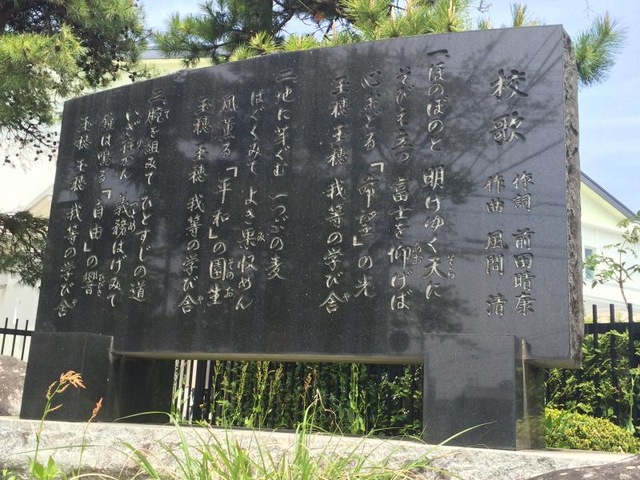 校歌
作詞 前田晴康
作曲 風間 清
一 ほのぼのと 明けゆく天に
そら
そびえ立つ 富士を仰げば
心おどる 「希望」の光
玉穂 玉穂 我等の学び舎
や
二 地に芽ぐむ 一つぶの麦
はぐくみて よき果収めん
み
風薫る 「平和」の園生
そのお
玉穂 玉穂 我等の学び舎
や
三 腕を組みて ひとすじの道
いざ往かん 義務はげみて
つとめ
鐘は鳴る 「自由」の響
玉穂 玉穂 我等の学び舎
や